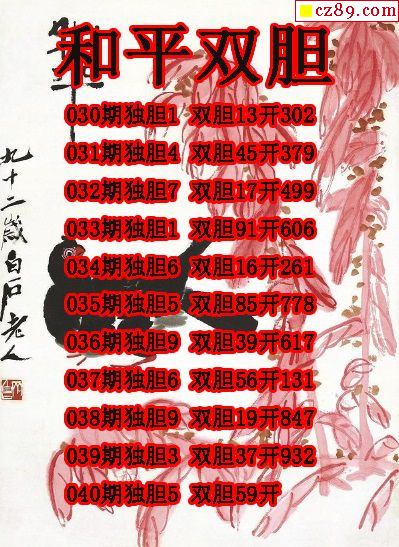 cz89.com
和平双胆
030期独胆1 双胆13开302
031期独胆4 双胆45开379
032期独胆7 双胆17开499
033期独胆1 双胆91开606
034期独胆6 双胆16开261
035期独胆5 双胆85开778
036期独胆9 双胆39开617
037期独胆6 双胆56开131
038期独胆9 双胆19开847
039期独胆3 双胆37开932
040期独胆5 双胆59开
九十二歲白石老人